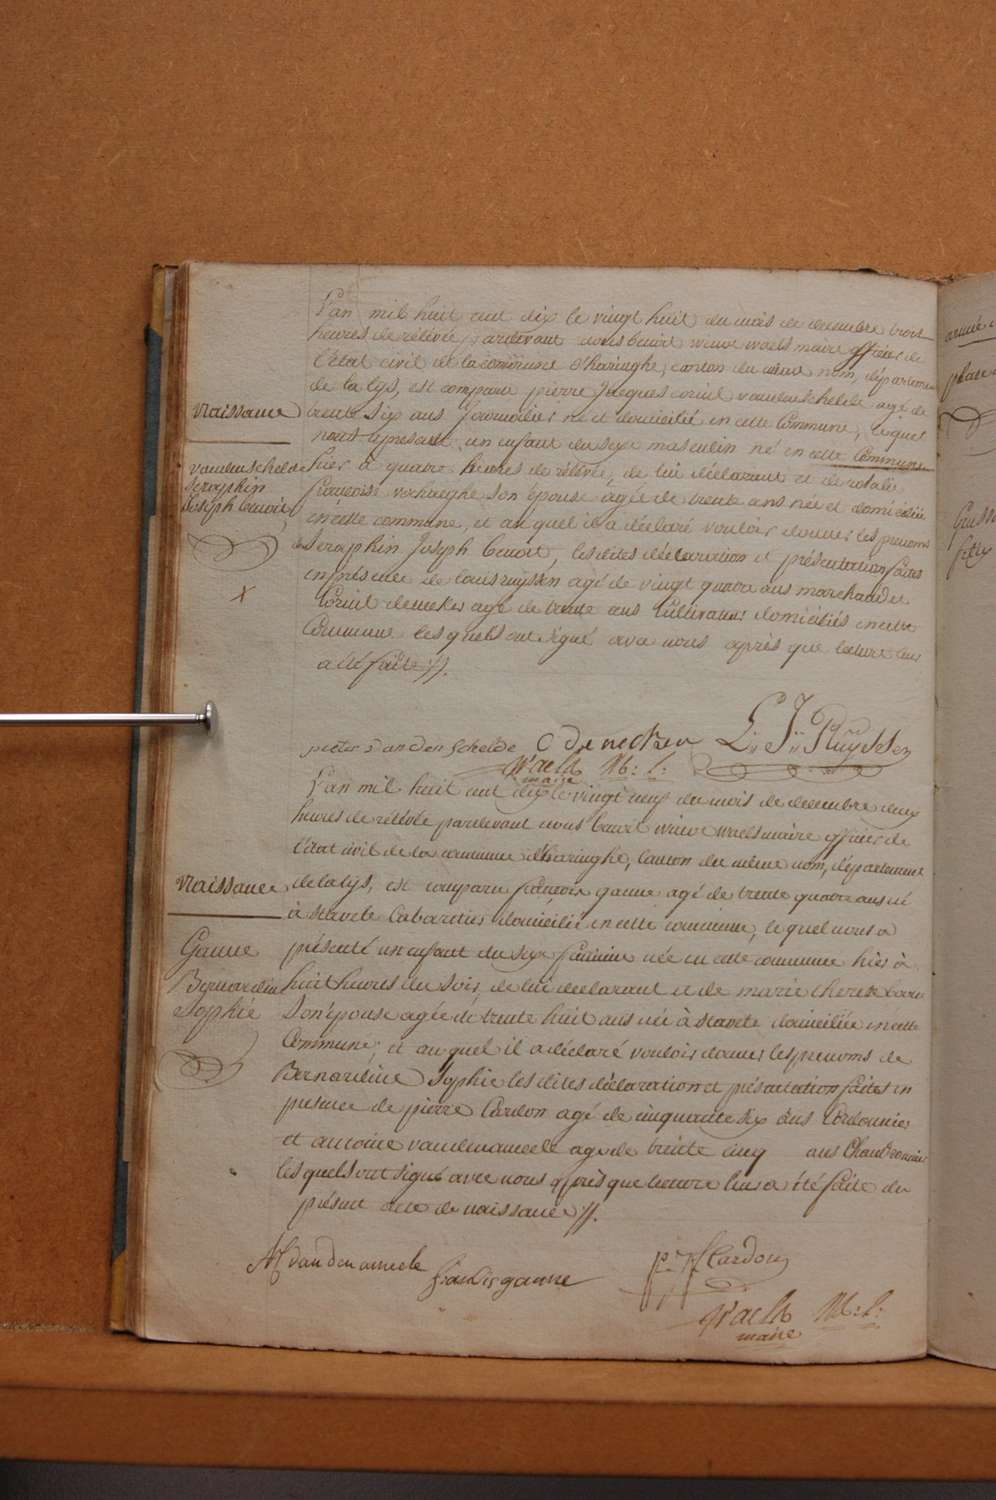 L'an mil huit cent dix le vingt huit du mois de decembre trois
heures de rélévée, pardevant nous benoit winoc waels maire officier de
l'état civil de la commune d'haringhe, canton du même nom, département
de la lys, est comparu pierre Jacques vandenschelde agé de
Naissance
trente six ans Journalier né et domicilié en cette Commune, lequel
nous a présenté un enfant du sexe masculin né en cette Commune
vandenschelde
hier à quatre heures de rélévée, de lui déclarant et de rosalie
Seraphin
françoise son épouse agée de trente ans née et domiciliée
Joseph benoit
en cette commune, et au quel il a déclaré vouloir donner les prenoms
de Seraphin Joseph benoit, les dites déclaration et présentation faites
en présence de louis ruyssen agé de vingt quatre ans marchand et
agé de trente ans Cultivateur domiciliés en cette
Commune les quels ont signé avec nous après que lecture leur
a été faite //.
pieter van den schelde C denecker L: J: Ruyssen
Waels M: l:
maire
L'an mil huit cent dix le vingt neuf du mois de decembre deux
heures de rélévée pardevant nous benoit winoc waels maire officier de
l'état civil de la commune d'haringhe, Canton du même nom, département
Naissance
de la lys, est comparu françois ganne agé de trente quatre ans né
à stavele Cabaretier domicilié en cette commune, le quel nous a
Ganne
présenté un enfant du sexe féminin née en cette commune hier à
Bernardine
huit heures du soir, de lui declarant et de marie therese
Sophie
son épouse agée de trente huit ans née à stavele domiciliée en cette
Commune; et au quel il a déclaré vouloir donner les prenoms de
Bernardine Sophie les dites déclaration et présentation faites en
presence de pierre Cardon agé de cinquante six ans Cordonnier
et antoine vandenameele agé de trente cinq ans
les quels ont signé avec nous après que lecture leur a été faite du
présent acte de naissance //.
vandenameele francis ganne p: f Cardon
Waels M: l:
maire